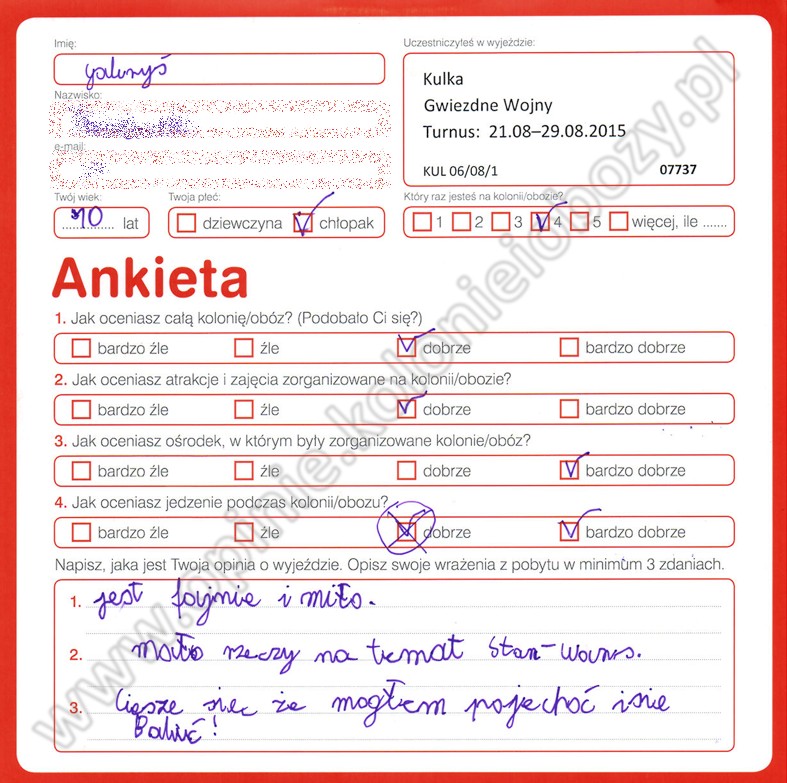 Imię:
Uczestniczyłeś w wyjeździe:
Kulka
Gwiezdne Wojny
Nazwisko:
Turnus: 21.08–29.08.2015
e-mail:
KUL 06/08/1 07737
Twój wiek: Twoja płeć: Który raz jesteś na kolonii/obozie?
10 lat dziewczyna chłopak 1 2 3 4 5 więcej, ile .......
Ankieta
1. Jak oceniasz całą kolonię/obóz? (Podobało Ci się?)
bardzo źle źle dobrze bardzo dobrze
2. Jak oceniasz atrakcje i zajęcia zorganizowane na kolonii/obozie?
bardzo źle źle dobrze bardzo dobrze
3. Jak oceniasz ośrodek, w którym były zorganizowane kolonie/obóz?
bardzo źle źle dobrze bardzo dobrze
4. Jak oceniasz jedzenie podczas kolonii/obozu?
bardzo źle źle dobrze bardzo dobrze
Napisz, jaka jest Twoja opinia o wyjeździe. Opisz swoje wrażenia z pobytu w minimum 3 zdaniach.
1. jest fajnie i miło.
2. mało rzeczy na temat Star-Wours.
3. Ciesze siec że mogłem pojechać i sie
Bawić!
www.opinie.kolonieiobozy.pl